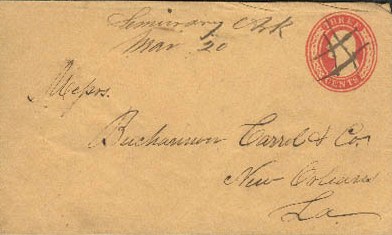 Seminary Ark
Mar. 20
THREE
CENTS
Messrs.
Buchannon Carrol & Co.
New Orleans
La